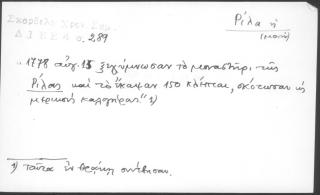 Σκορδέλη Χρον. Σημ.
Δ Ι Ε Ε Α σ. 289
Ρίλα ἡ
(μονή)
„1778 αὐγ. 15 ξεγύμνωσαν τὸ μοναστῆρι τῆς
Ρίλας καὶ τὸ ἔκαψαν 150 κλέπται, σκότωσαν κ
μερικοὺς καλογήρας." 1)
1) Ταῦτα ἐν Θράκῃ συνέβησαν.